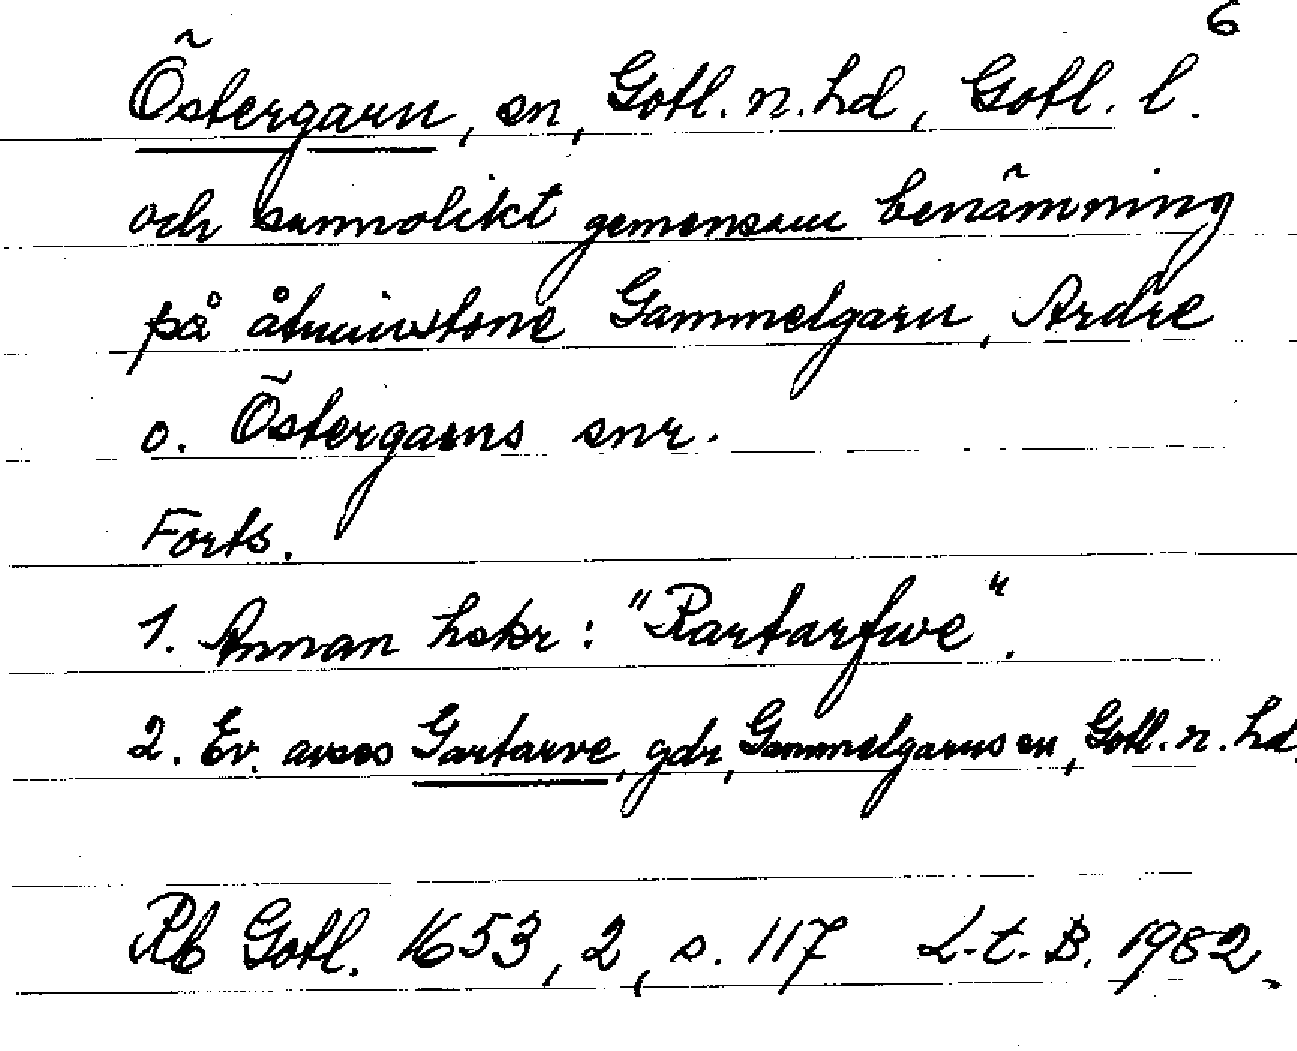 6
Östergarn, sn, Gotl. n. hd, Gotl. l.
och sannolikt gemensam benämning
på åtminstone Gammelgarn, Ardre
o. Östergarns snr.
Forts.
1. Annan hskr: "Rartarfwe".
2. Ev. avses Gartarve, gdr, Gammelgarns sn, Gotl. n. hd.
Rb Gotl. 1653, 2, s. 117 L-t. B. 1982.